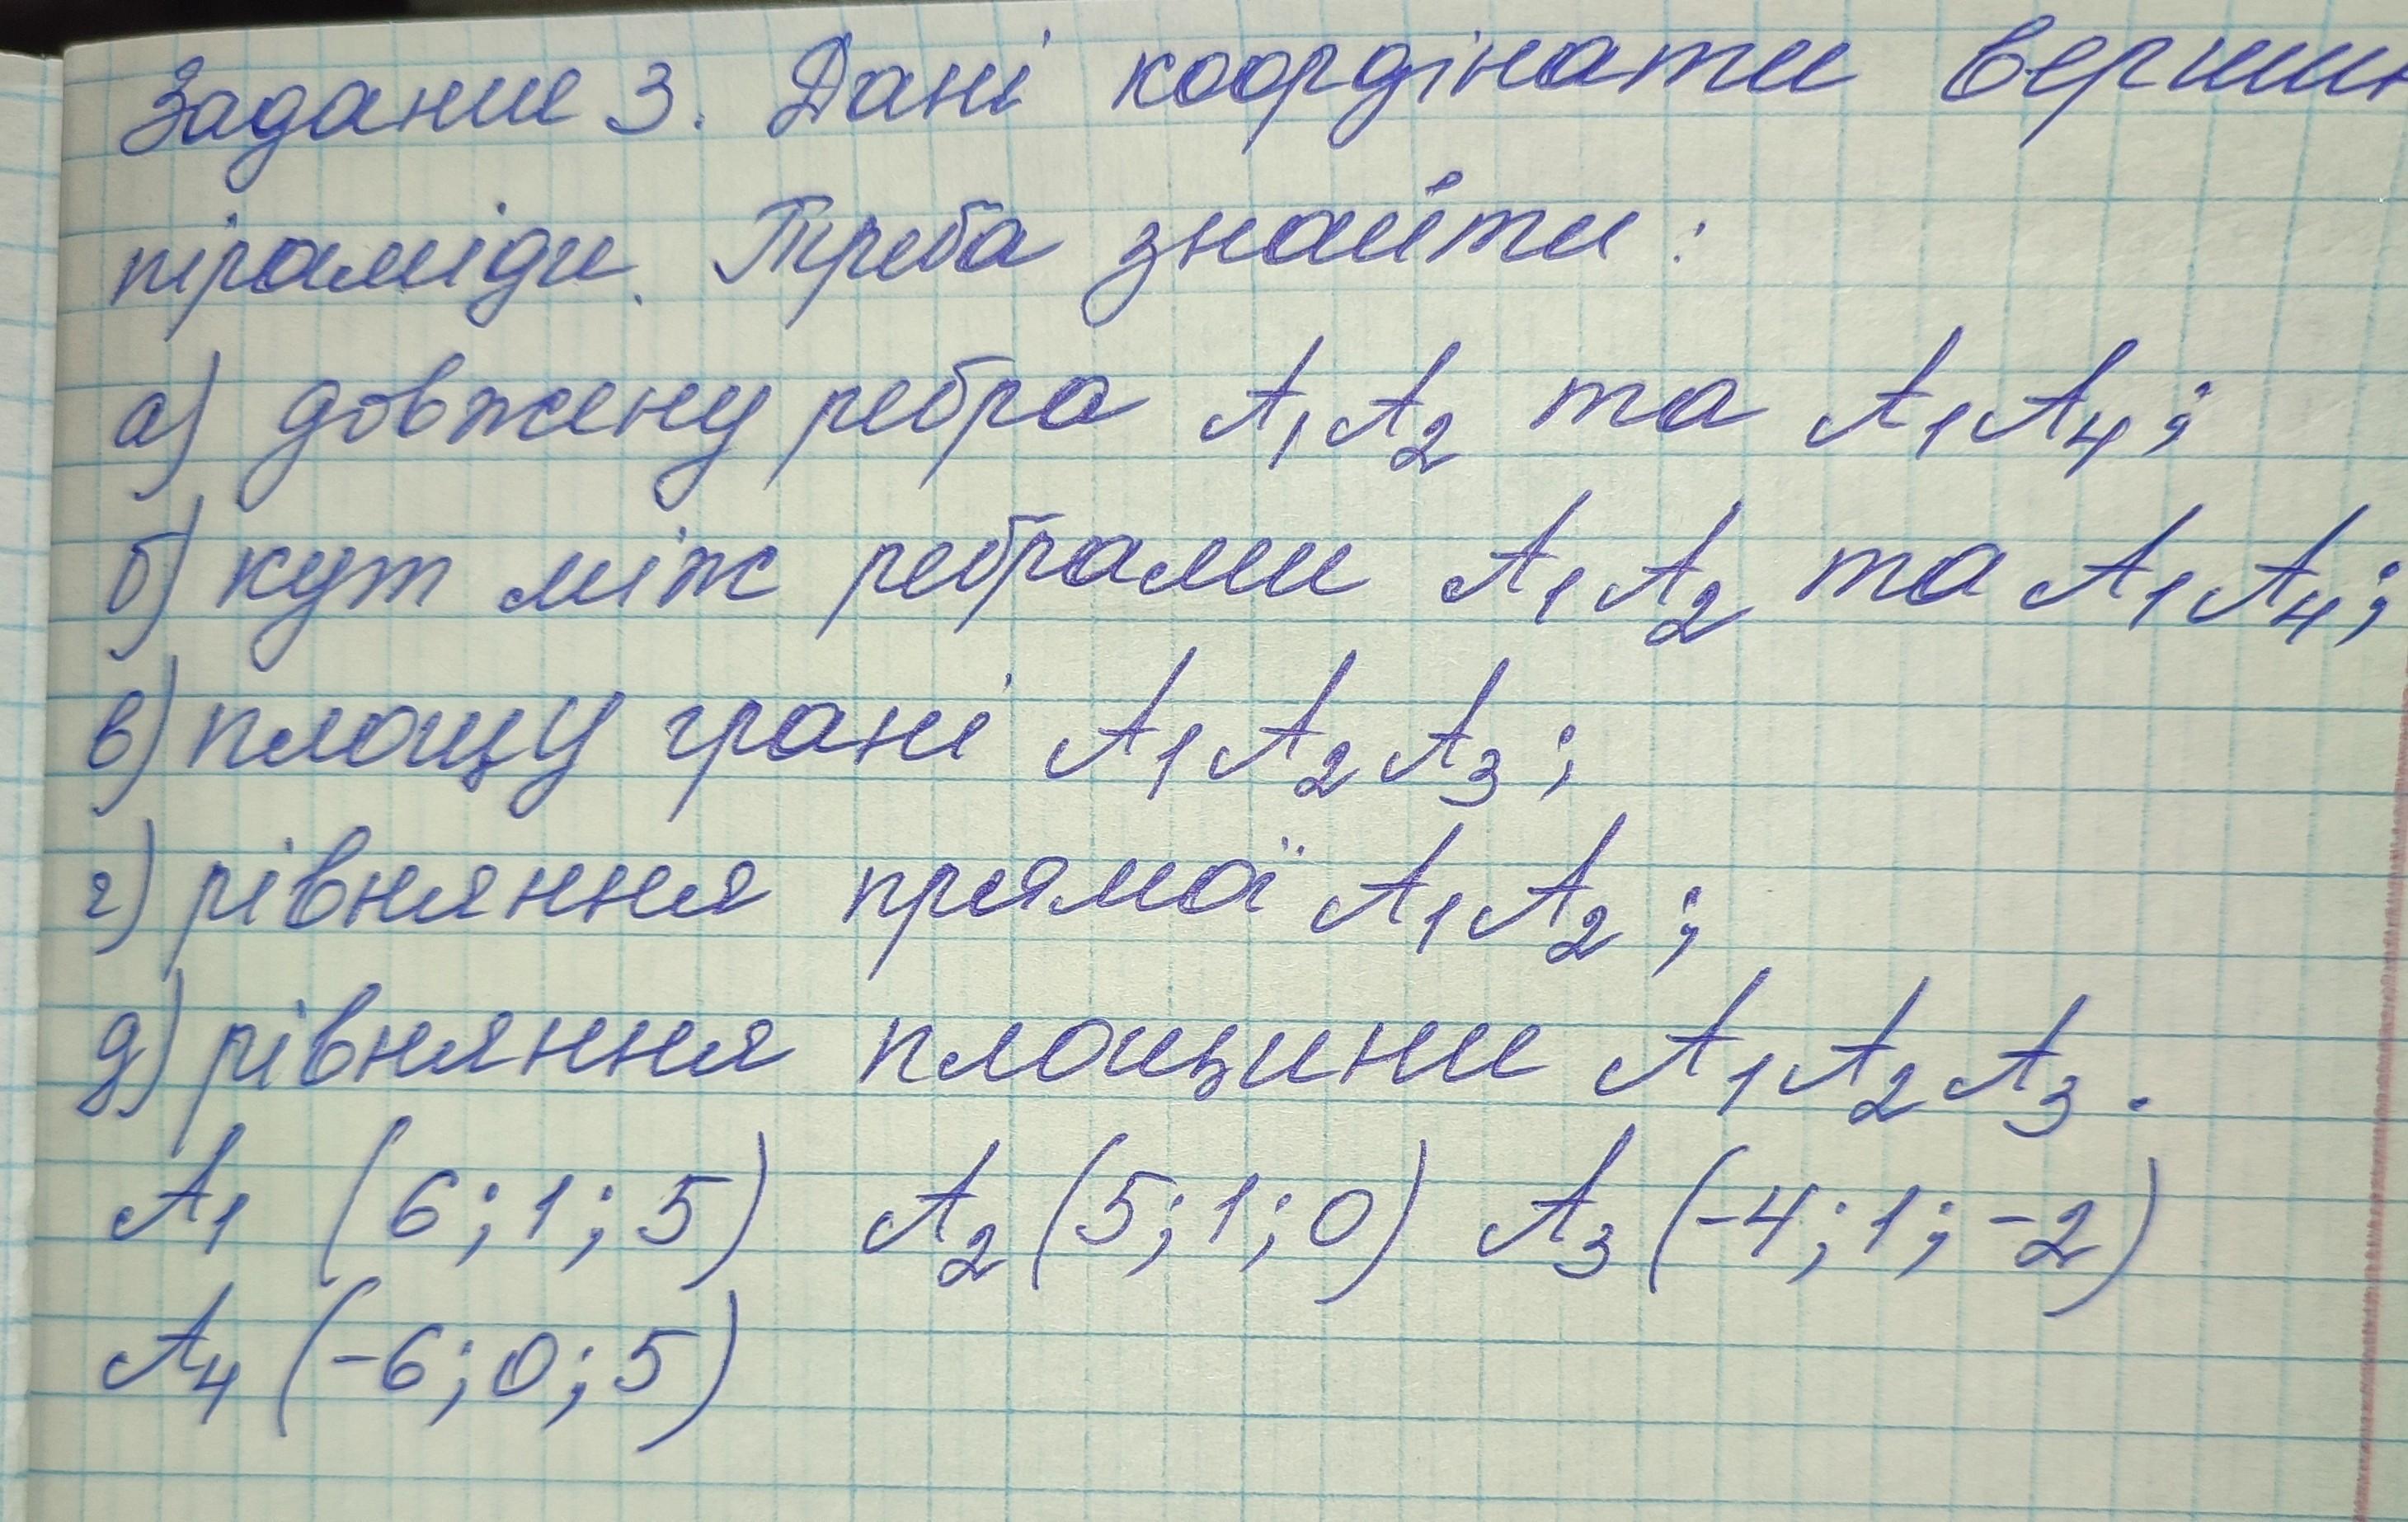 Задание 3. Дані коордінати вершин
піраміди. Треба знайти:
а) довжену ребра A₁A₂ та A₁A₄;
б) кут між ребрами A₁A₂ та A₁A₄;
в) площу грані A₁A₂A₃;
г) рівняння прямої A₁A₂;
д) рівняння площини A₁A₂A₃.
A₁ (6;1;5) A₂(5;1;0) A₃(-4;1;-2)
A₄(-6;0;5)